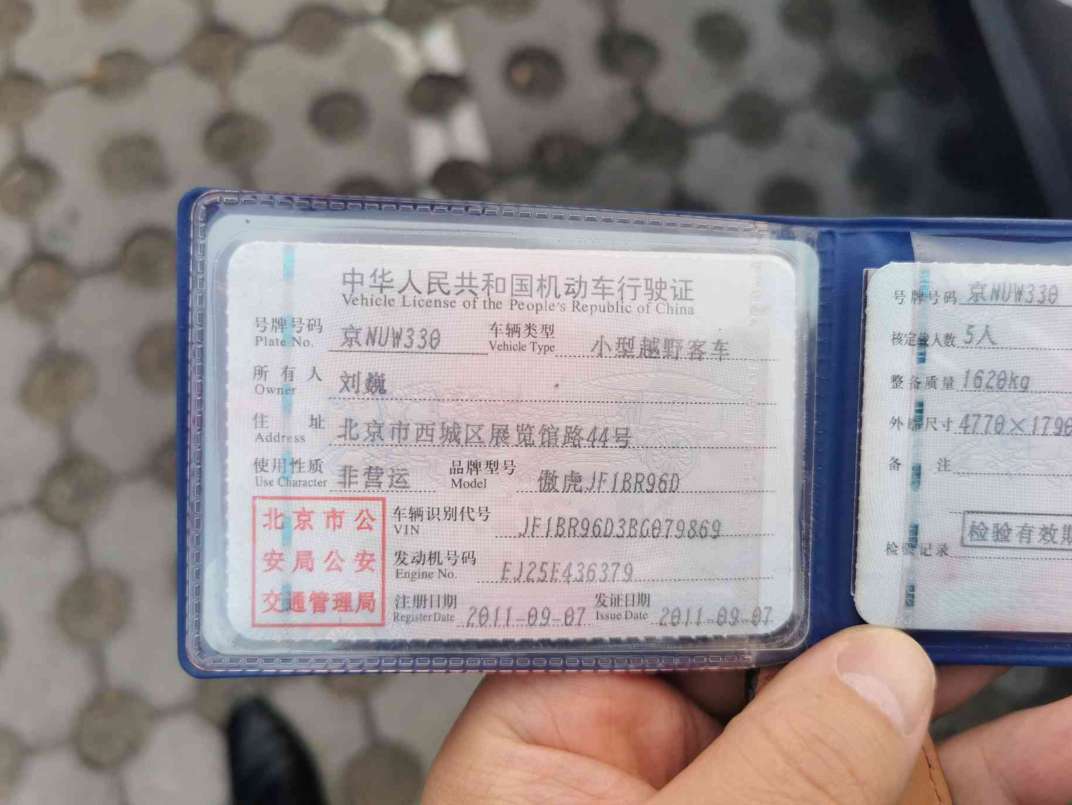 中华人民共和国机动车行驶证
Vehicle License of the People's Republic of China
号牌号码 京NUW330 车辆类型 小型越野客车
Plate No. Vehicle Type
所有人 刘巍
Owner
住址 北京市西城区展览馆路44号
Address
使用性质 非营运 品牌型号 傲虎JF1BR96D
Use Character Model
北京市公
安局公安
交通管理局
车辆识别代号 JF1BR96D3BG079869
VIN
发动机号码 EJ25E436379
Engine No.
注册日期 2011-09-07 发证日期 2011-09-07
Register Date Issue Date
号牌号码 京NUW330
核定载人数 5人
整备质量 1620kg
外廓尺寸 4770×1790
备注
检验有效期
检验记录